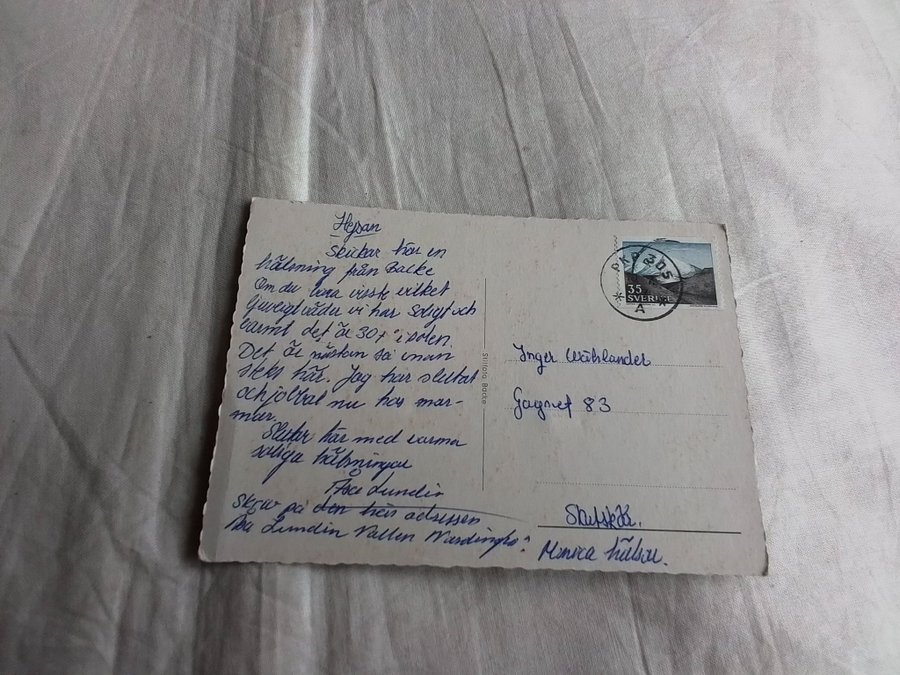 Hejsan
Skickar här en
hälsning från Backe
Om du bara visste vilket
vi har soligt och
varmt det är 30+° i solen.
Det är nästan så man
steks här. Jag har slutat
och jobbat nu hos mar-
mar.
Skickar här med varma
soliga hälsningar
Åsa Lundin
Skriv på den här adressen
Åsa Lundin Vallen
Stilfoto Backe
PKP 305
A
35
SVERIGE
Inger Wåhlander
Gagnef 83
Skutskär.
Monica hälsar.